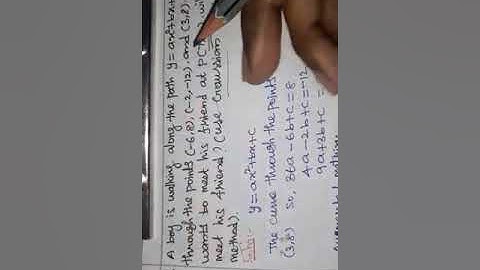 A boy is walking along the path y = ax²+bx+
through the points (-6,8), (-2,-12), and (3,8)
wants to meet his friend at P(
meet his friend? (use Gaussian
method).
Soln:- y=ax²+bx+c
The curve through the points
(3,8) so, 36a-6b+c=8
4a-2b+c=-12
9a+3b+c=